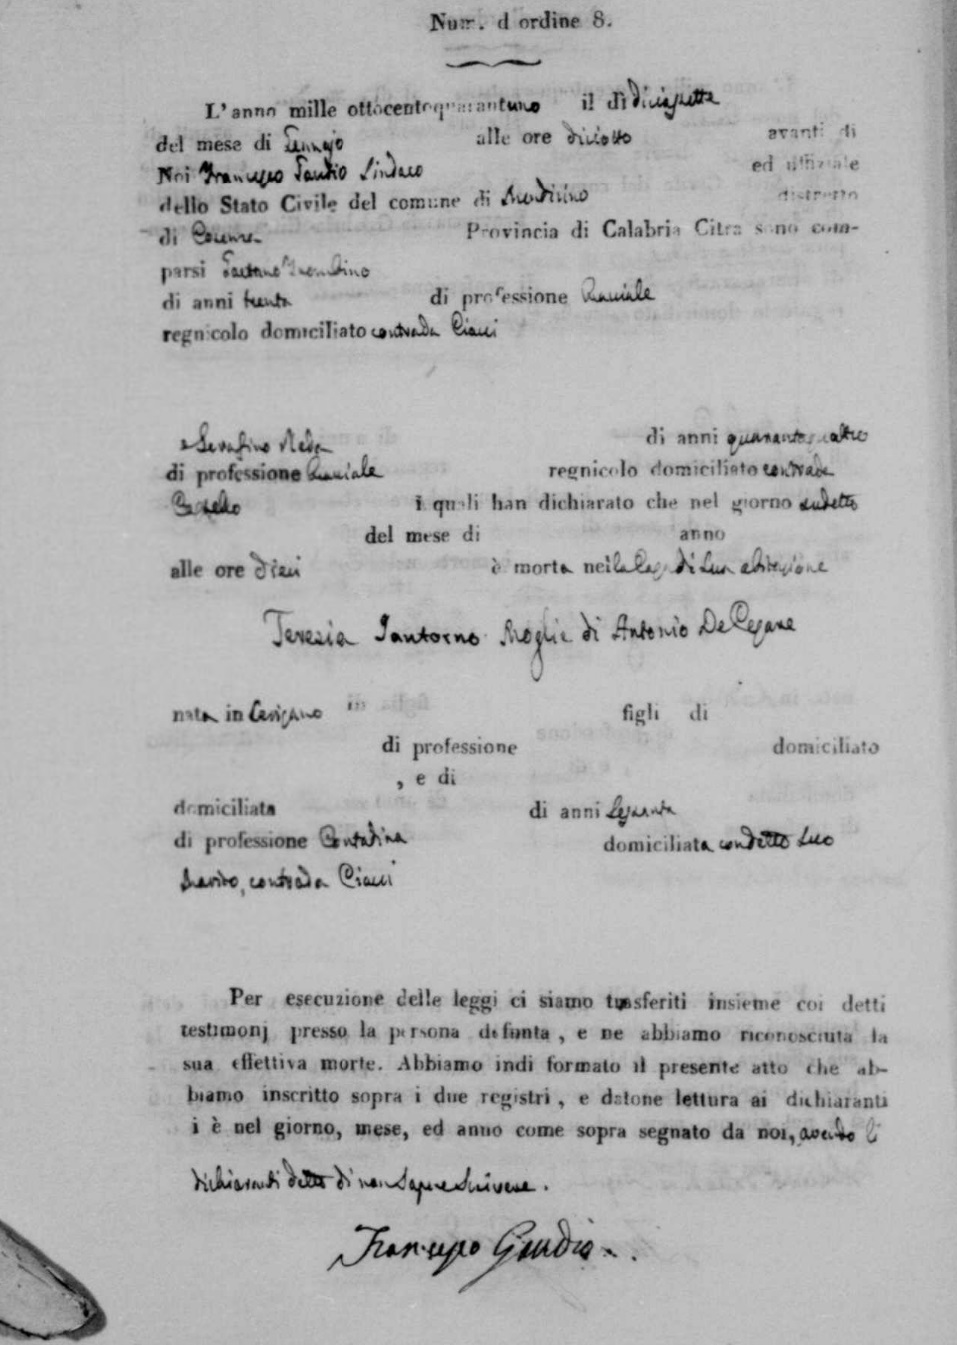 Num. d ordine 8.
L'anno mille ottocentoquarantuno il dì diciasette
del mese di Gennajo alle ore diciotto avanti di
Noi Francesco Gaudio Sindaco ed uffiziale
dello Stato Civile del comune di Mendicino distretto
di Cosenza Provincia di Calabria Citra sono com-
parsi Gaetano
di anni trenta di professione
regnicolo domiciliato contrada Ciauci
e Serafino di anni quarantaquattro
di professione regnicolo domiciliato contrada
i quali han dichiarato che nel giorno sudetto
del mese di anno
alle ore dieci è morta nella Casa di Sua abitazione
Teresia Santorno Moglie di Antonio De Cesare
nata in Cerisano figli di
di professione domiciliato
, e di
domiciliata di anni Sessanta
di professione Contadina domiciliata condetto Suo
Marito, contrada Ciauci
Per esecuzione delle leggi ci siamo trasferiti insieme coi detti
testimonj presso la persona defunta, e ne abbiamo riconosciuta la
sua effettiva morte. Abbiamo indi formato il presente atto che ab-
biamo inscritto sopra i due registri, e datone lettura ai dichiaranti
i è nel giorno, mese, ed anno come sopra segnato da noi, avendo i
dichiaranti detto di non Sapere Scrivere.
Francesco Gaudio